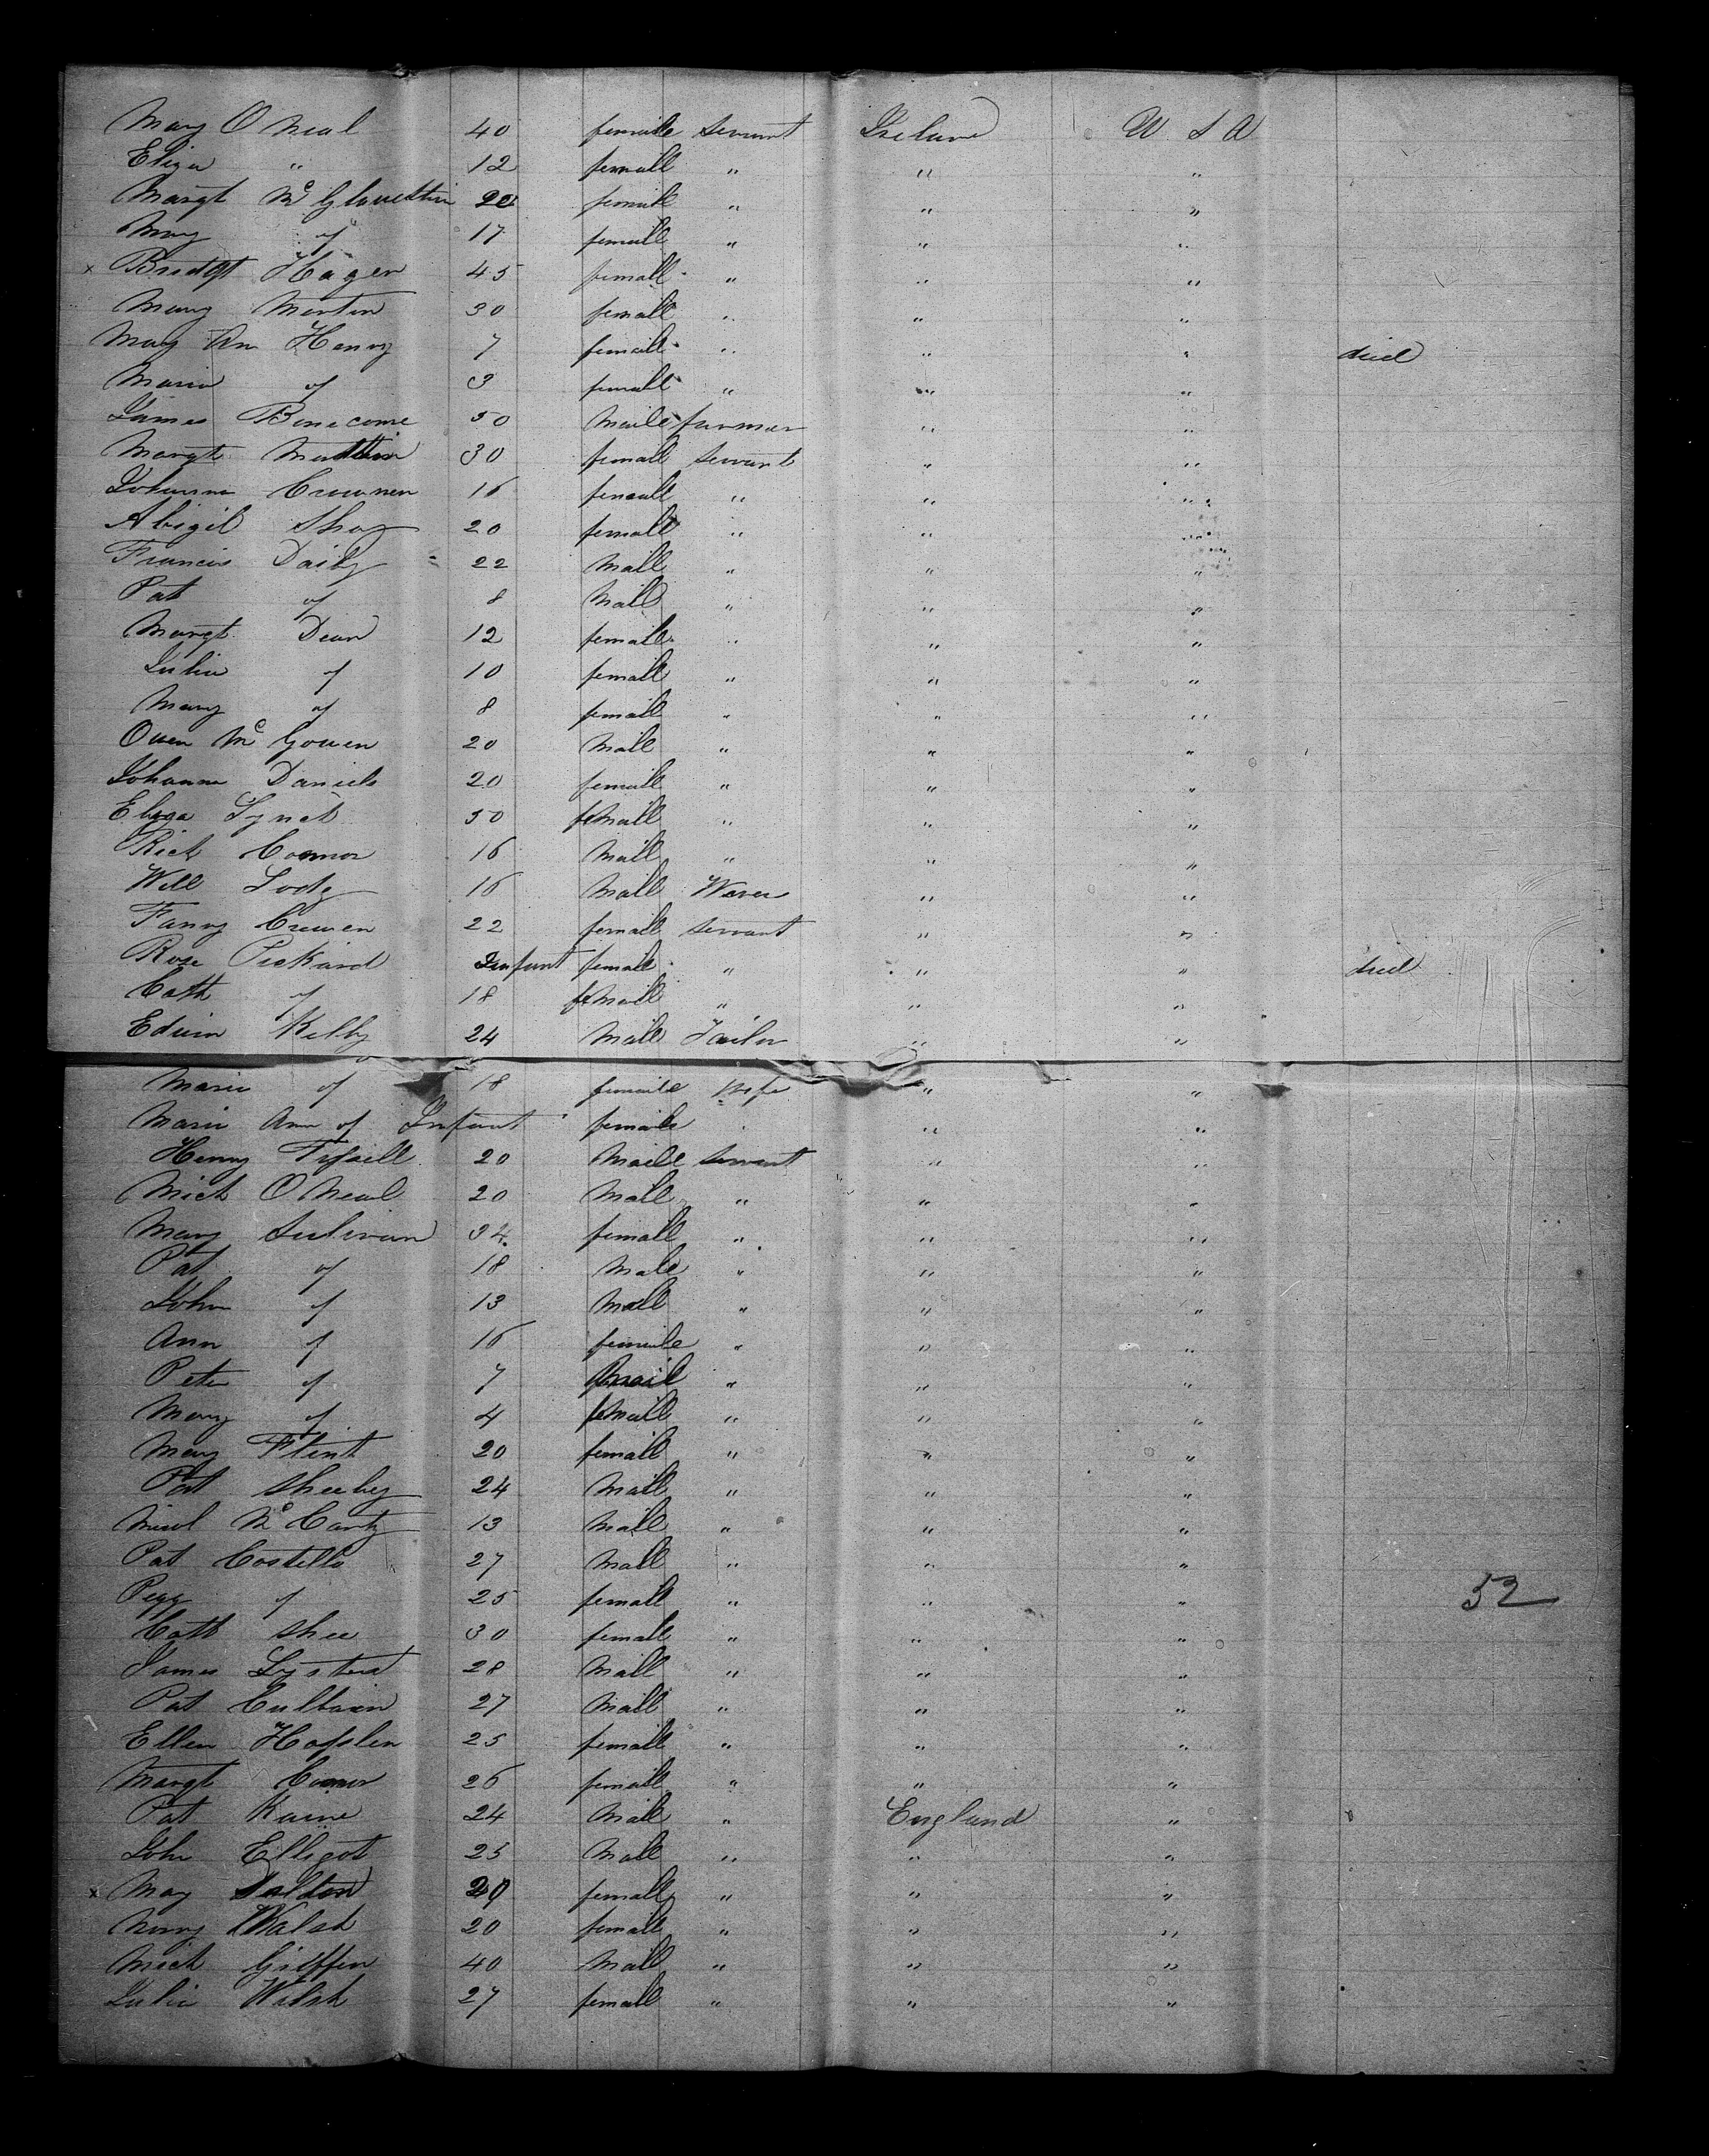 Mary O Neal 40 female servant Ireland U S A
Eliza " 12 female " " "
Margt Mc 22 female " " "
Mary of 17 female " " "
x Bridgt Hagen 45 female " " "
Mary Martin 30 female " " "
Mary An Henry 7 female " " " died
Maria of 3 female " " "
James 50 Maile farmer " "
Margt 30 femail servant " "
Johanna 16 female " " "
Abigil Shay 20 female " " "
Francis Daily 22 Mall " " "
Pat of 8 Mall " " "
Margt Dean 12 female " " "
Julia of 10 female " " "
Mary of 8 female " " "
Owen Mc Gowen 20 Male " " "
Johanna Daniels 20 female " " "
Eliza Lynch 50 female " " "
Rich Connor 16 Mall " " "
Will 16 Mall Wever " "
Fanny 22 female servant " "
Rose Pickard Infant female " " " died
Cath of 18 female " " "
Edwin Kelly 24 Male Tailor " "
Maria of 18 female wife " "
Maria Ann of Infant female " "
Henry 20 Maile servant " "
Mich O Neal 20 Mall " " "
Mary Sulivan 34 female " " "
Pat of 18 Male " " "
John of 13 Mall " " "
Ann of 16 female " " "
Peter of 7 Mail " " "
Mary of 4 female " " "
Mary Flint 20 female " " "
Pat Sheehy 24 Mall " " "
Mc Carty 13 Mall " " "
Pat Costello 27 Mall " " "
Pegg of 25 female " " "
52
Cath Shee 30 female " " "
James 28 Mall " " "
Pat 27 Mall " " "
Ellen 25 female " " "
Margt Connor 26 female " " "
Pat Kaine 24 Male " England "
John Elligot 25 Male " " "
x May Dalton female " " "
Walsh 20 female " " "
Mich Griffen 40 Mall " " "
Julia Walsh 27 female " " "